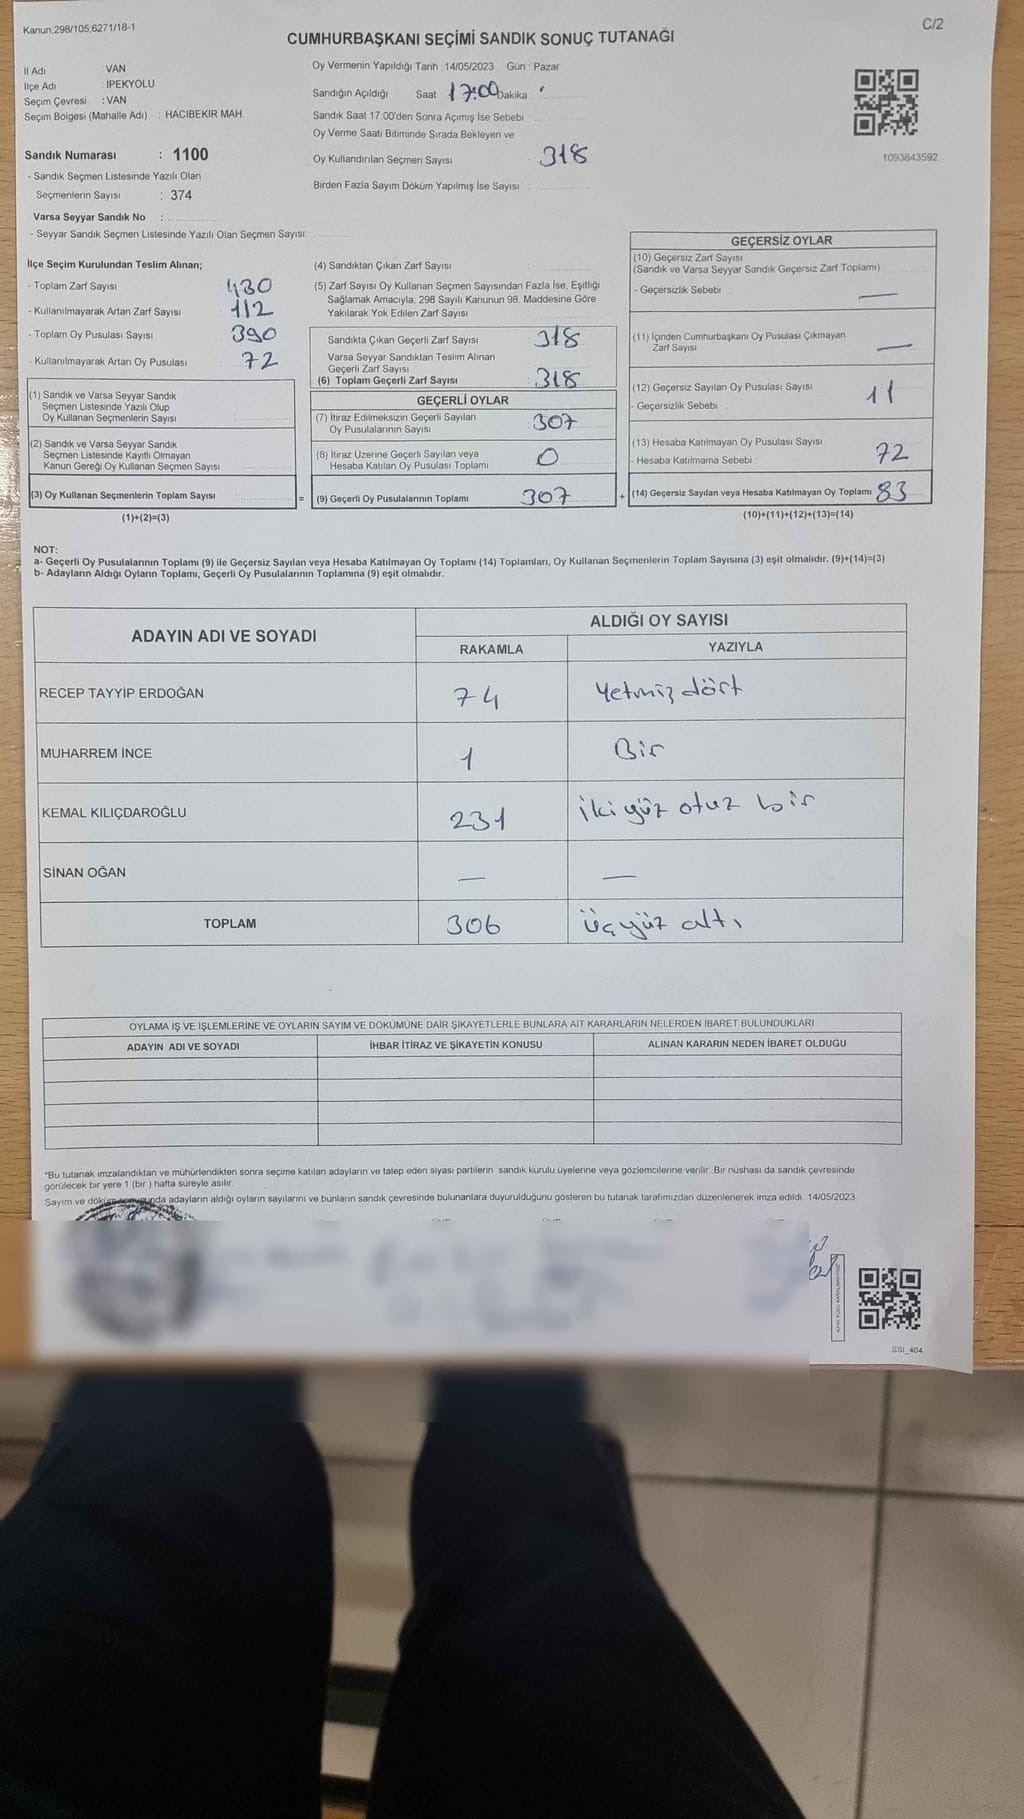 Kanun;298/105;6271/18-1
C/2
CUMHURBAŞKANI SEÇİMİ SANDIK SONUÇ TUTANAĞI
İl Adı VAN
İlçe Adı : İPEKYOLU
Seçim Çevresi : VAN
Seçim Bölgesi (Mahalle Adı) : HACIBEKİR MAH.
Sandık Numarası : 1100
- Sandık Seçmen Listesinde Yazılı Olan
Seçmenlerin Sayısı : 374
Varsa Seyyar Sandık No :
- Seyyar Sandık Seçmen Listesinde Yazılı Olan Seçmen Sayısı:
Oy Vermenin Yapıldığı Tarih : 14/05/2023 Gün : Pazar
Sandığın Açıldığı Saat 17:00 Dakika :
Sandık Saat 17:00'den Sonra Açımış İse Sebebi :
Oy Verme Saati Bitiminde Sırada Bekleyen ve
Oy Kullandırılan Seçmen Sayısı : 318
Birden Fazla Sayım Döküm Yapılmış İse Sayısı :
1093843592
İlçe Seçim Kurulundan Teslim Alınan;
- Toplam Zarf Sayısı : 430
- Kullanılmayarak Artan Zarf Sayısı : 112
- Toplam Oy Pusulası Sayısı : 390
- Kullanılmayarak Artan Oy Pusulası : 72
(1) Sandık ve Varsa Seyyar Sandık
Seçmen Listesinde Yazılı Olup
Oy Kullanan Seçmenlerin Sayısı :
(2) Sandık ve Varsa Seyyar Sandık
Seçmen Listesinde Kayıtlı Olmayan
Kanun Gereği Oy Kullanan Seçmen Sayısı :
(3) Oy Kullanan Seçmenlerin Toplam Sayısı : =
(1)+(2)=(3)
(4) Sandıktan Çıkan Zarf Sayısı
(5) Zarf Sayısı Oy Kullanan Seçmen Sayısından Fazla İse, Eşitliği
Sağlamak Amacıyla, 298 Sayılı Kanunun 98. Maddesine Göre
Yakılarak Yok Edilen Zarf Sayısı
Sandıkta Çıkan Geçerli Zarf Sayısı 318
Varsa Seyyar Sandıktan Teslim Alınan
Geçerli Zarf Sayısı
(6) Toplam Geçerli Zarf Sayısı : 318
GEÇERLİ OYLAR
(7) İtiraz Edilmeksizin Geçerli Sayılan
Oy Pusulalarının Sayısı : 307
(8) İtiraz Üzerine Geçerli Sayılan veya
Hesaba Katılan Oy Pusulası Toplamı : 0
(9) Geçerli Oy Pusulalarının Toplamı : 307 +
GEÇERSİZ OYLAR
(10) Geçersiz Zarf Sayısı
(Sandık ve Varsa Seyyar Sandık Geçersiz Zarf Toplamı)
- Geçersizlik Sebebi : —
(11) İçinden Cumhurbaşkanı Oy Pusulası Çıkmayan
Zarf Sayısı —
(12) Geçersiz Sayılan Oy Pusulası Sayısı 11
- Geçersizlik Sebebi :
(13) Hesaba Katılmayan Oy Pusulası Sayısı 72
- Hesaba Katılmama Sebebi :
(14) Geçersiz Sayılan veya Hesaba Katılmayan Oy Toplamı : 83
(10)+(11)+(12)+(13)=(14)
NOT:
a- Geçerli Oy Pusulalarının Toplamı (9) ile Geçersiz Sayılan veya Hesaba Katılmayan Oy Toplamı (14) Toplamları, Oy Kullanan Seçmenlerin Toplam Sayısına (3) eşit olmalıdır. (9)+(14)=(3)
b- Adayların Aldığı Oyların Toplamı, Geçerli Oy Pusulalarının Toplamına (9) eşit olmalıdır.
ADAYIN ADI VE SOYADI
ALDIĞI OY SAYISI
RAKAMLA YAZIYLA
RECEP TAYYİP ERDOĞAN 74 Yetmiş dört
MUHARREM İNCE 1 Bir
KEMAL KILIÇDAROĞLU 231 iki yüz otuz bir
SİNAN OĞAN — —
TOPLAM 306 üçyüz altı
OYLAMA İŞ VE İŞLEMLERİNE VE OYLARIN SAYIM VE DÖKÜMÜNE DAİR ŞİKAYETLERLE BUNLARA AİT KARARLARIN NELERDEN İBARET BULUNDUKLARI
ADAYIN ADI VE SOYADI İHBAR İTİRAZ VE ŞİKAYETİN KONUSU ALINAN KARARIN NEDEN İBARET OLDUĞU
*Bu tutanak imzalandıktan ve mühürlendikten sonra seçime katılan adayların ve talep eden siyasi partilerin sandık kurulu üyelerine veya gözlemcilerine verilir. Bir nüshası da sandık çevresinde
görülecek bir yere 1 (bir ) hafta süreyle asılır.
Sayım ve döküm sonucunda adayların aldığı oyların sayılarını ve bunların sandık çevresinde bulunanlara duyurulduğunu gösteren bu tutanak tarafımızdan düzenlenerek imza edildi. 14/05/2023
SSI_404